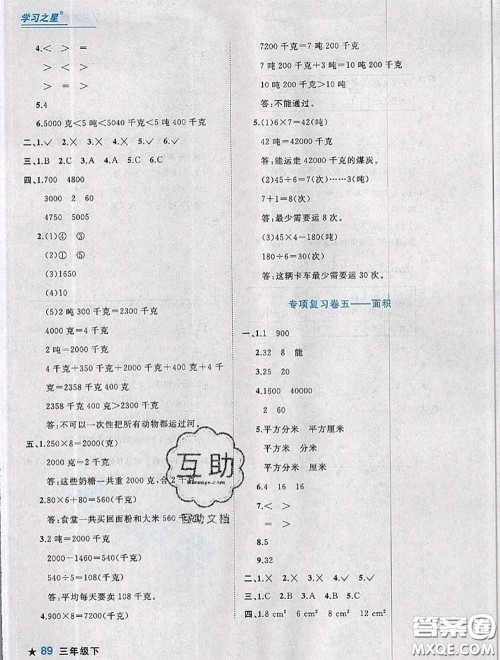 学习之星
4.＜ ＞ ＜
＞ ＜ ＞
＞ ＝ ＞
5.4
6.5000克＜5吨＜5040千克＜5吨400千克
二、1.√ 2.× 3.× 4.× 5.× 6.√
三、1.B 2.C 3.A 4.A 5.C 6.C
四、1.700 4800
3000 2 60
4750 5005
2.(1)④ ⑤
(2)① ③
(3)1650
(4)10
(5)2吨300千克＝2300千克
4000克＝4千克
4千克+350千克+2000千克+4千克+400克＝2358千克400克
2358千克400克＞2300千克
答:不可以一次性把所有动物都运过河。
五、1.250×8＝2000(克)
2000克＝2千克
答:这些奶糖一共重2000克,合2千克。
2.80×6+80＝560(千克)
答:食堂一共买回面粉和大米560千克。
3.2吨＝2000千克
2000－1460＝540(千克)
540÷5＝108(千克)
答:平均每天要卖108千克。
4.900×8＝7200(千克)
★ 89 三年级下
7200千克＝7吨200千克
7吨200千克+3吨＝10吨200千克
10吨200千克＞10吨
答:不能通过。
5.(1)6×7＝42(吨)
42吨＝42000千克
答:能运走42000千克的煤炭。
(2)45÷6＝7(次)……3(吨)
7+1＝8(次)
答:最少需要运8次。
(3)45×4＝180(吨)
180÷6＝30(次)
答:这辆卡车最少需要运30次。
专项复习卷五——面积
一、1.1 900
2.32 8 能
3.25 20
4.1600 40000
2 60
5.平方分米 平方厘米
平方米 分米 平方米
6.4 16 16
7.＜ ＞ ＝
＞ ＜ ＞
8.5
9.32
二、1.× 2.× 3.× 4.× 5.√
三、1.C 2.B 3.C 4.A 5.B
四、1.8 cm² 6 cm² 8 cm² 12 cm²
互助
互助文档
答案圈
MXQE.COM